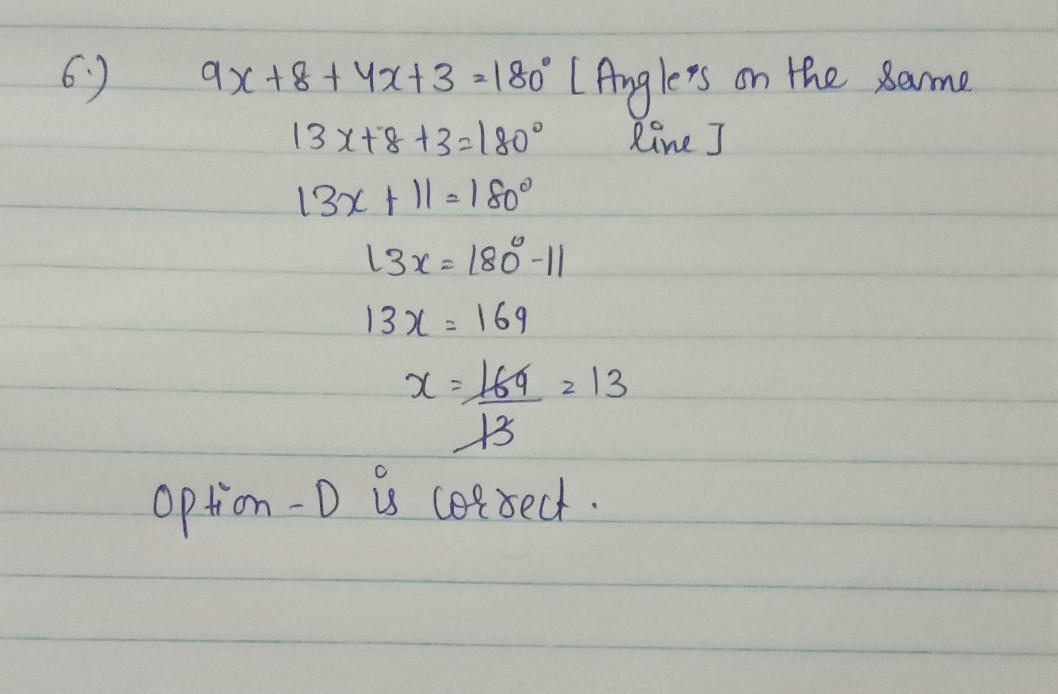 6.) 9x+8+4x+3=180° [Angle's on the same
13x+8+3=180° line]
13x+11=180°
13x=180°-11
13x=169
x=169/13=13
Option-D is correct.